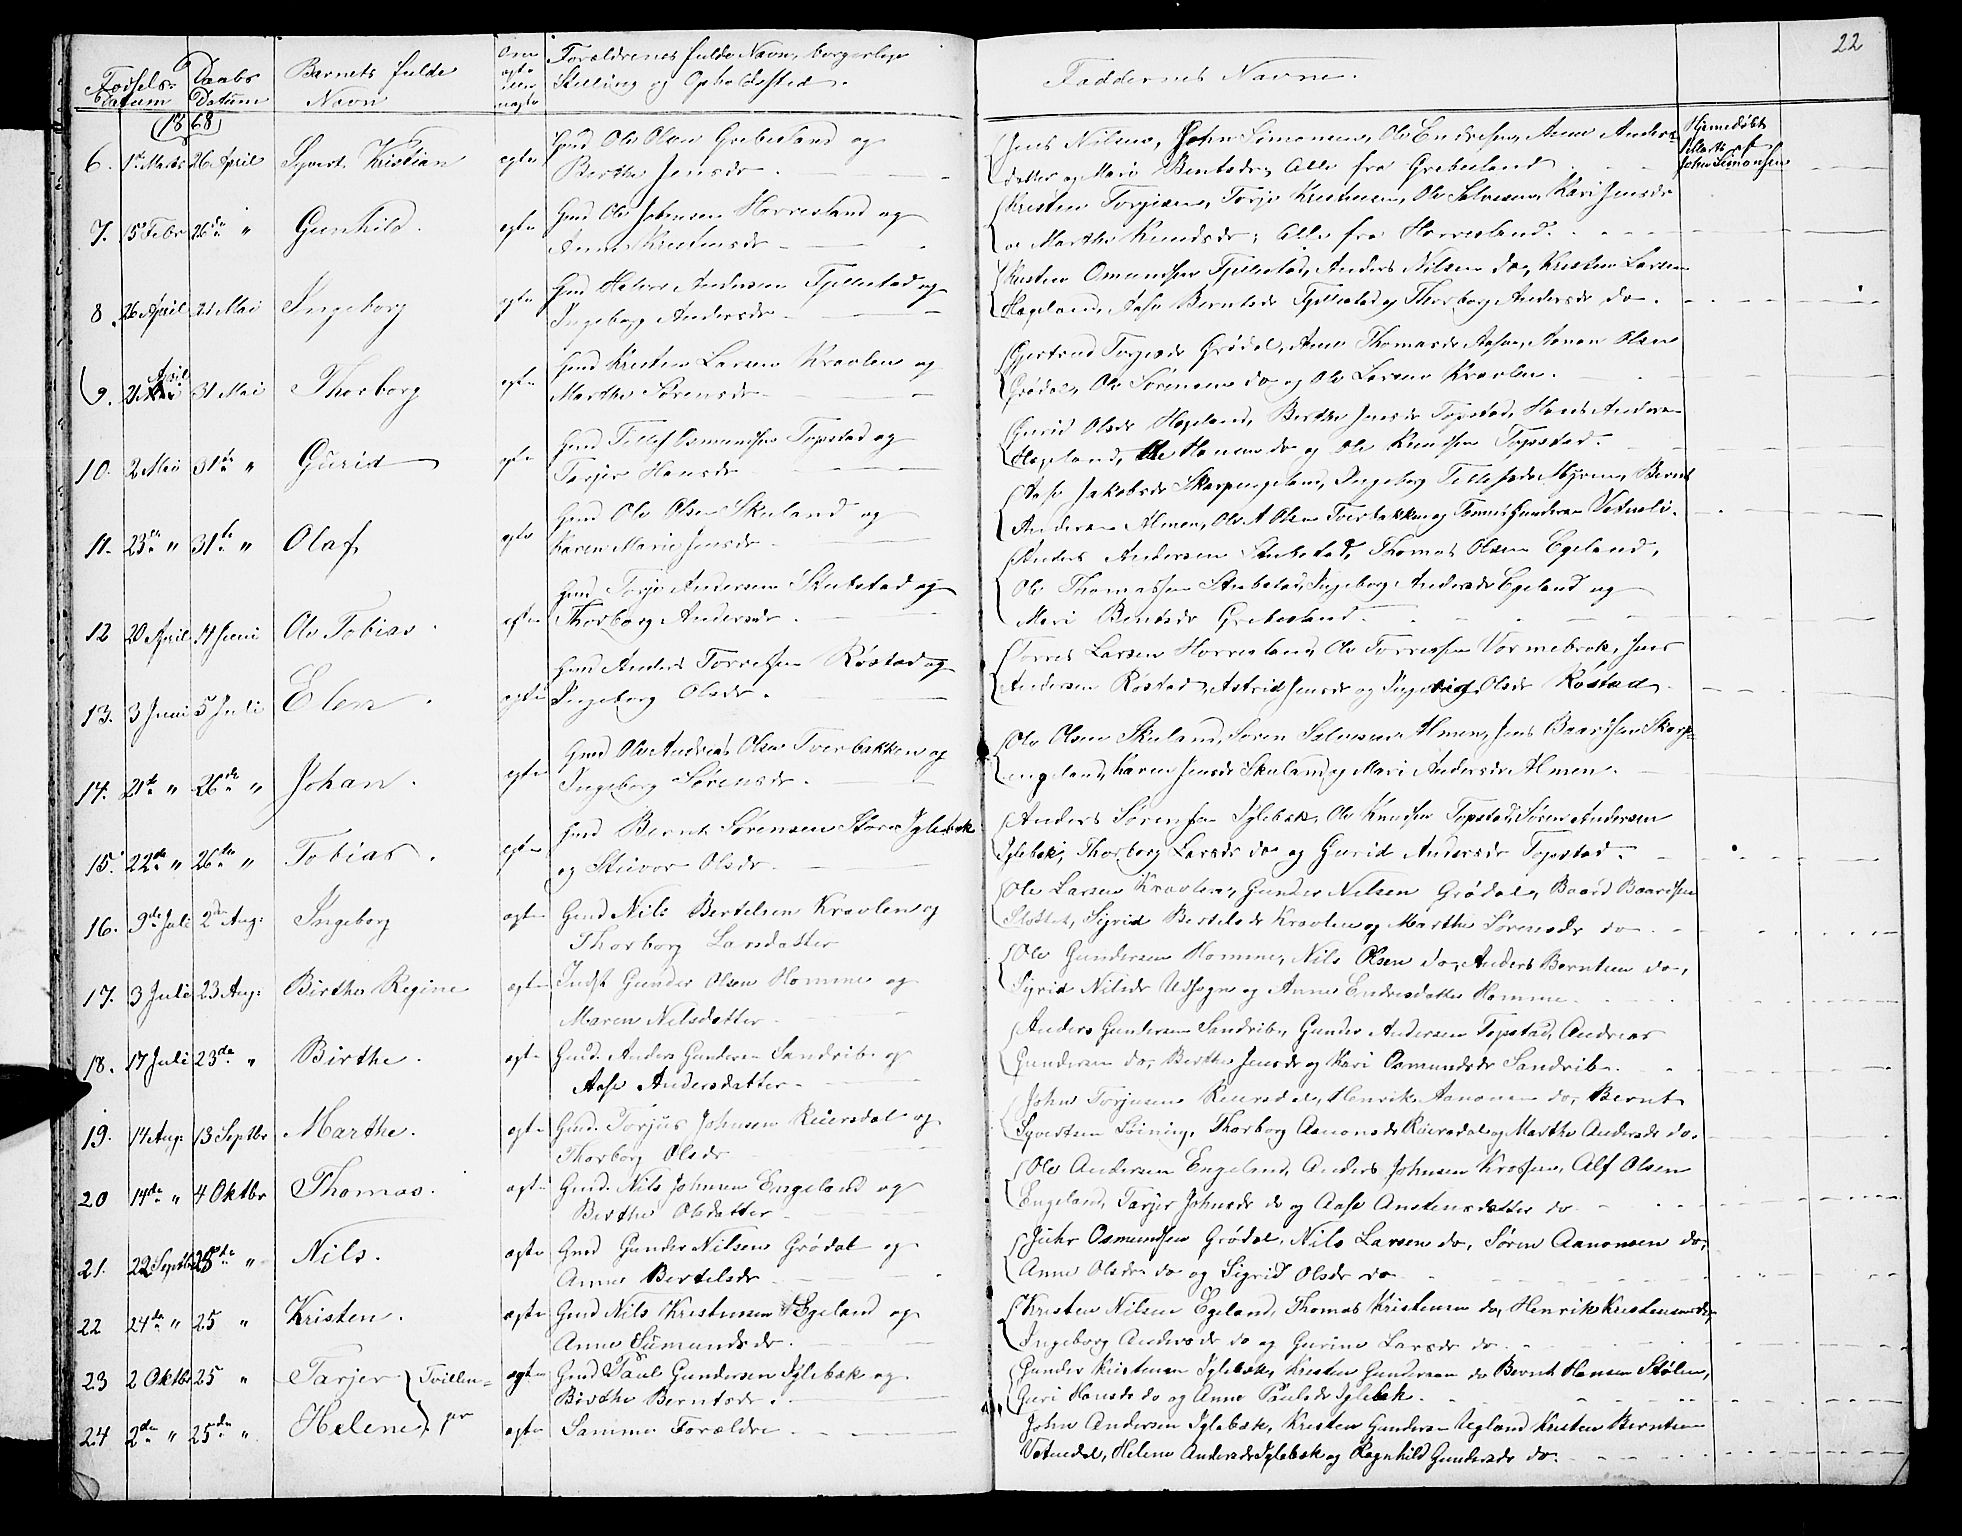 22
Fødsels- Daabs Barnets fulde Forældrenes fulde Navn, borgerlige Faddernes Navne.
Datum Datum Navn Stilling og Opholdssted.
1868
6. 1ste Marts 26 April Syvert Kristian ægte Gmd Ole Olsen Grebesland og
Berthe Jensdr
Jens Nilsen, John Simonsen, Ole Endresen, Anne Anders-
datter og Mari Bentsdr, Alle fra Grebesland
Hjemmedøbt
Marts af
John Simonsen
7. 15 Febr 26de " Gunhild. ægte Gmd Ole Johnsen Horresland og
Anne Kristensdr
Kristen Torgiusen, Torje Kristensen, Ole Salvesen, Kari Jensdr
og Marthe Knudsdr, Alle fra Horresland.
8. 26 April 21 Mai Ingeborg ægte Gmd Halvor Andersen Fjellestad og
Ingeborg Andersdr
Kristen Omundsen Fjellestad, Anders Nilsen do, Kristen Larsen
Hægeland, Aase Berntsdr Fjellestad og Thorborg Andersdr do.
9. 21 April 31 Mai Thorborg ægte Gmd Kristen Larsen Kravlen og
Marthe Sørensdr
Gjertrud Torjesdr Grødal, Anne Thomasdr Aasen, Aanon Olsen
Grødal, Ole Sørensen do og Ole Larsen Kravlen.
10. 2 Mai 31te " Gurid ægte Gmd Tellef Osmundsen Topstad og
Tarjer Hansdr
Gurid Olsdr Hægeland, Berthe Jensdr Topstad, Hans Andersen
Hægeland, Ole Hansen do og Ole Knudsen Topstad.
11. 23de " 31te " Olaf ægte Gmd Ole Olsen Skuland og
Karen Marie Jensdr
Aase Jakobsdr Skarpengeland, Ingeborg Tellefsdr Myren, Bernt
Andersen Almen, Ole A Olsen Tverbakken og Tønnes Gundersen Vetneli.
12 20 April 11 Juni Ole Tobias. ægte Gmd Torje Andersen Stubstad og
Thorborg Andersdr.
Anders Andersen Stubstad, Thomas Olsen Egeland,
Ole Thomassen Stubstad, Ingeborg Andersdr Egeland og
Mari Bentsdr Grebesland.
13. 3 Juni 5 Juli Elen. ægte Gmd Anders Torressen Røstad og
Ingeborg Olsdr.
Torres Larsen Horresland, Ole Torressen Vormebrok, Jens
Andersen Røstad, Astrid Jensdr og Ingebrig Olsdr Røstad
14. 21de " 26de " Johan. ægte Gmd Ole Andreas Olsen Tverbakken og
Ingeborg Sørensdr.
Ole Olsen Skuland, Soren Salvesen Almen, Jens Baardsen Skarp-
engeland, Karen Jensdr Skuland og Mari Andersdr Almen.
15. 22de " 26de " Tobias. ægte Gmd Bernt Sørensen Store Iglebæk
og Stuvor Olsdr.
Anders Sørensen Iglebæk, Ole Knudsen Topstad, Søren Andersen
Iglebæk, Thorborg Larsdr do og Gurid Andersdr Topstad.
16. 9de Juli 2de Aug. Ingeborg ægte Gmd Nils Bertelsen Kravlen og
Thorborg Larsdatter
Ole Larsen Kravlen, Gunder Nilsen Grødal, Baard Baardsen
Sigrid Bertelsdr Kravlen og Marthe Sørensdr do
17. 3 Juli 23 Aug. Birthe Regine ægte Indst Gunder Olsen Homme og
Maren Nilsdatter
Ole Gundersen Homme, Nils Olsen do, Anders Berntsen do,
Sigrid Nilsdr Udhogne og Anne Endresdatter Homme.
18. 17 Juli 23de " Birthe. ægte Gmd. Anders Gundersen Sandrib og
Aase Andersdatter.
Anders Gundersen Sandrib, Gunder Andersen Topstad, Andreas
Gundersen do, Berthe Jensdr og Kari Osmundsdr Sandrib.
19. 14 Aug. 13 Septbr Marthe. ægte Gmd. Torjus Johnsen Reiersdal og
Thorborg Olsdr
John Torjusen Reiersdal, Henrik Aanonsen do, Bernt
Syvertsen Loining, Thorborg Aanonsdr Reiersdal og Marthe Andersdr do.
20 14de " 4 Oktbr Thomas. ægte Gmd. Nils Johnsen Engeland og
Berthe Olsdatter
Ole Andersen Engeland, Anders Johnsen Krossen, Alf Olsen
Engeland, Tarjer Johnsdr do og Aase Anstensdatter do
21. 22 Septbr 25de " Nils. ægte Gmd Gunder Nilsen Grødal og
Anne Bertelsdr
Osmundsen Grødal, Nils Larsen do, Søren Aanonsen do,
Anne Olsdr do og Sigrid Olsdr do
22 24de " 25 " Kristen. ægte Gmd Nils Kristensen Egeland og
Anne Gumundsdr.
Kristen Nilsen Egeland, Thomas Kristensen do, Henrik Kristensen do,
Ingeborg Andersdr do og Gurine Larsdr do
23 2 Oktbr 25 " Tarjer Tvillin- ægte Gmd Paul Gundersen Iglebæk og
Birthe Berntsdr.
Gunder Kristensen Iglebæk, Kristen Gundersen do Bernt Hansen Stølen,
Guri Hansdr do og Anne Paulsdr Iglebæk.
24 2de " 25de " Helene ger ægte Samme Forældre
John Andersen Iglebæk, Kristen Gundersen Ugland Kristen Berntsen
Vetnedal, Helene Andersdr Iglebæk og Ragnhild Gundersdr do.